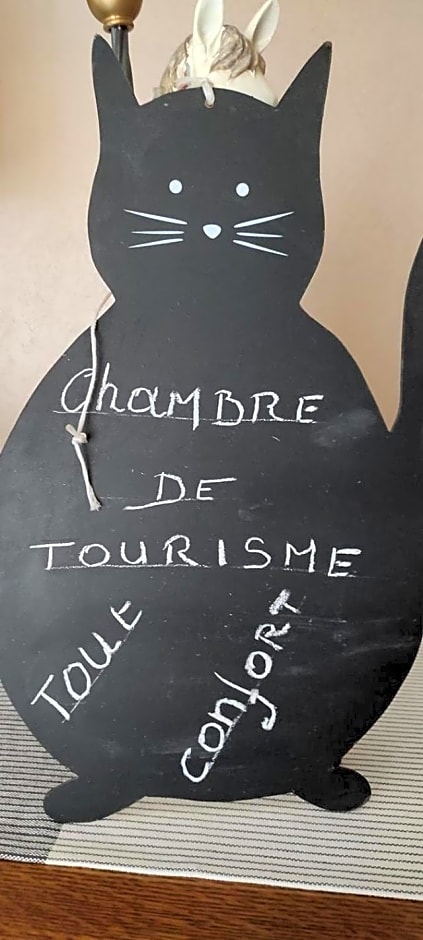 ChAMBRE
DE
TOURISME
TOUT
ConfORT